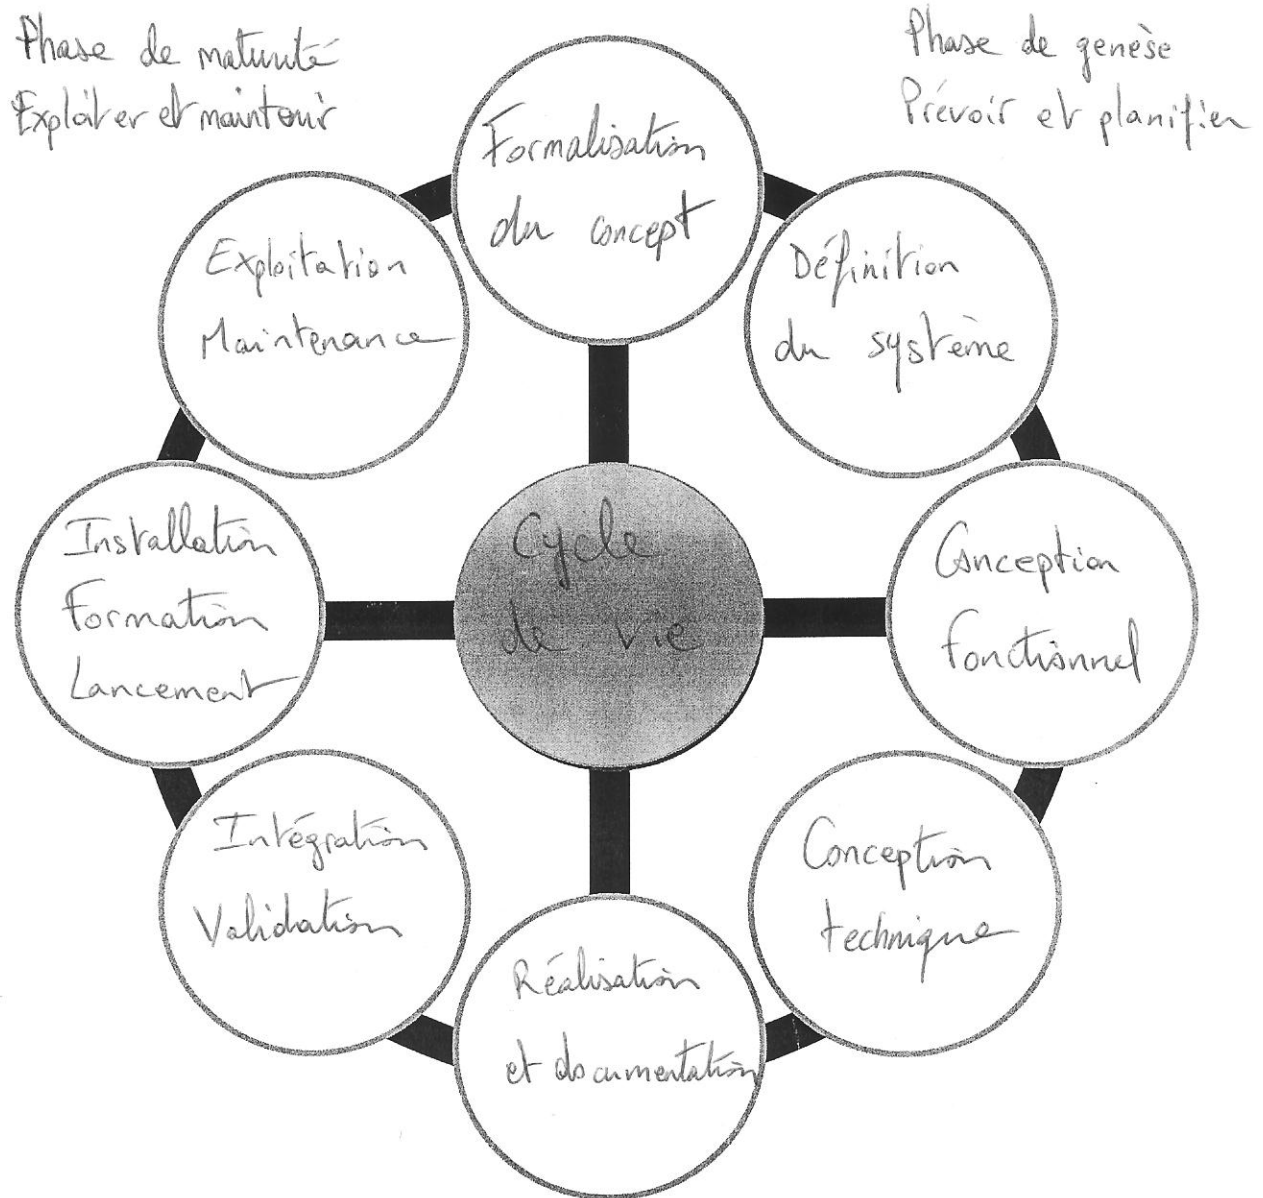 Phase de maturité
Exploiter et maintenir
Phase de genèse
Prévoir et planifier
Formalisation
du concept
Définition
du système
Conception
fonctionnel
Conception
technique
Réalisation
et documentation
Intégration
Validation
Installation
Formation
Lancement
Exploitation
Maintenance
Cycle
de vie